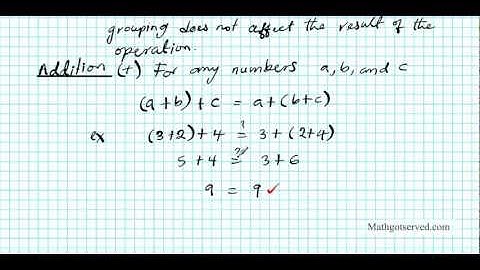 grouping does not affect the result of the
operation.
Addition (+) For any numbers a, b, and c
(a+b)+c = a+(b+c)
ex (3+2)+4 ≟ 3+(2+4)
5+4 ≟ 3+6
9 = 9 ✓
Mathgotserved.com